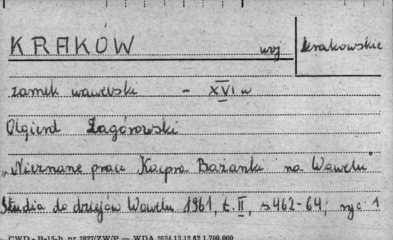 KRAKÓW woj krakowskie
zamek wawelski - XVI w
Olgierd Zagórowski
"Nieznane prace Kacpra Bażanki na Wawelu"
Studia do dziejów Wawelu 1961, t. II, s. 462-64, ryc 1
CWD - B-15-b, nr 2827/ZW/P — WDA 3634 13.12.62 1.700.000